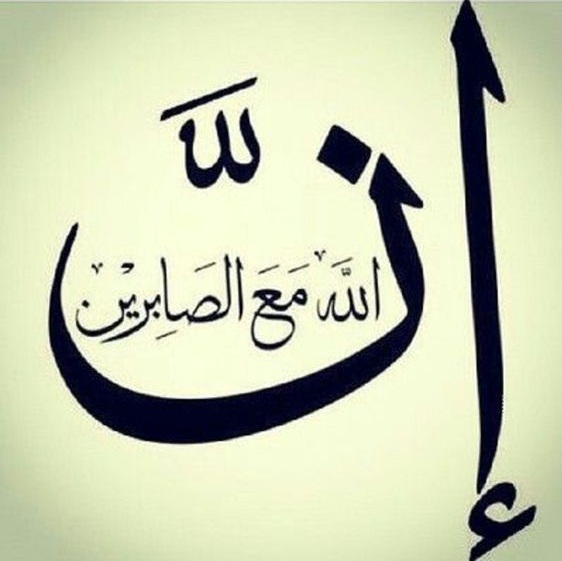 إنَّ
اللَّه مَعَ الصَابِرِيْن